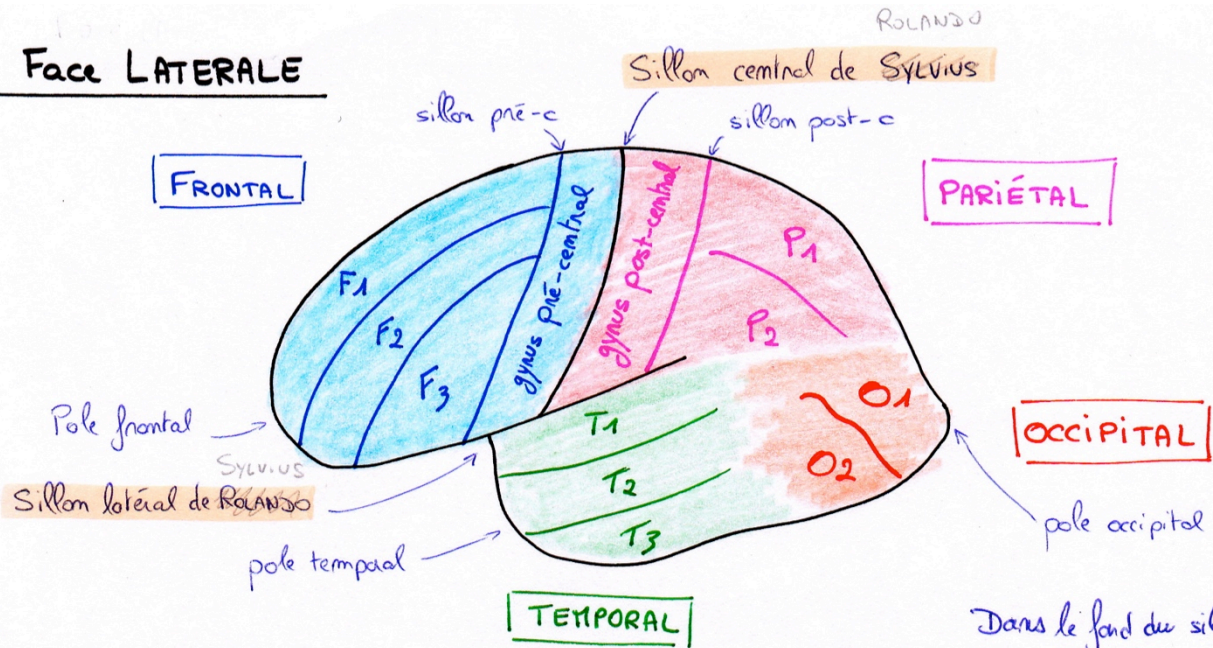 Face LATERALE
ROLANDO
Sillon central de SYLVIUS
sillon pré-c
sillon post-c
FRONTAL
PARIÉTAL
gyrus pré-central
gyrus post-central
F1
F2
F3
P1
P2
T1
T2
T3
O1
O2
Pole frontal
OCCIPITAL
SYLVIUS
Sillon latéral de ROLANDO
pole occipital
pole temporal
TEMPORAL
Dans le fond du sil